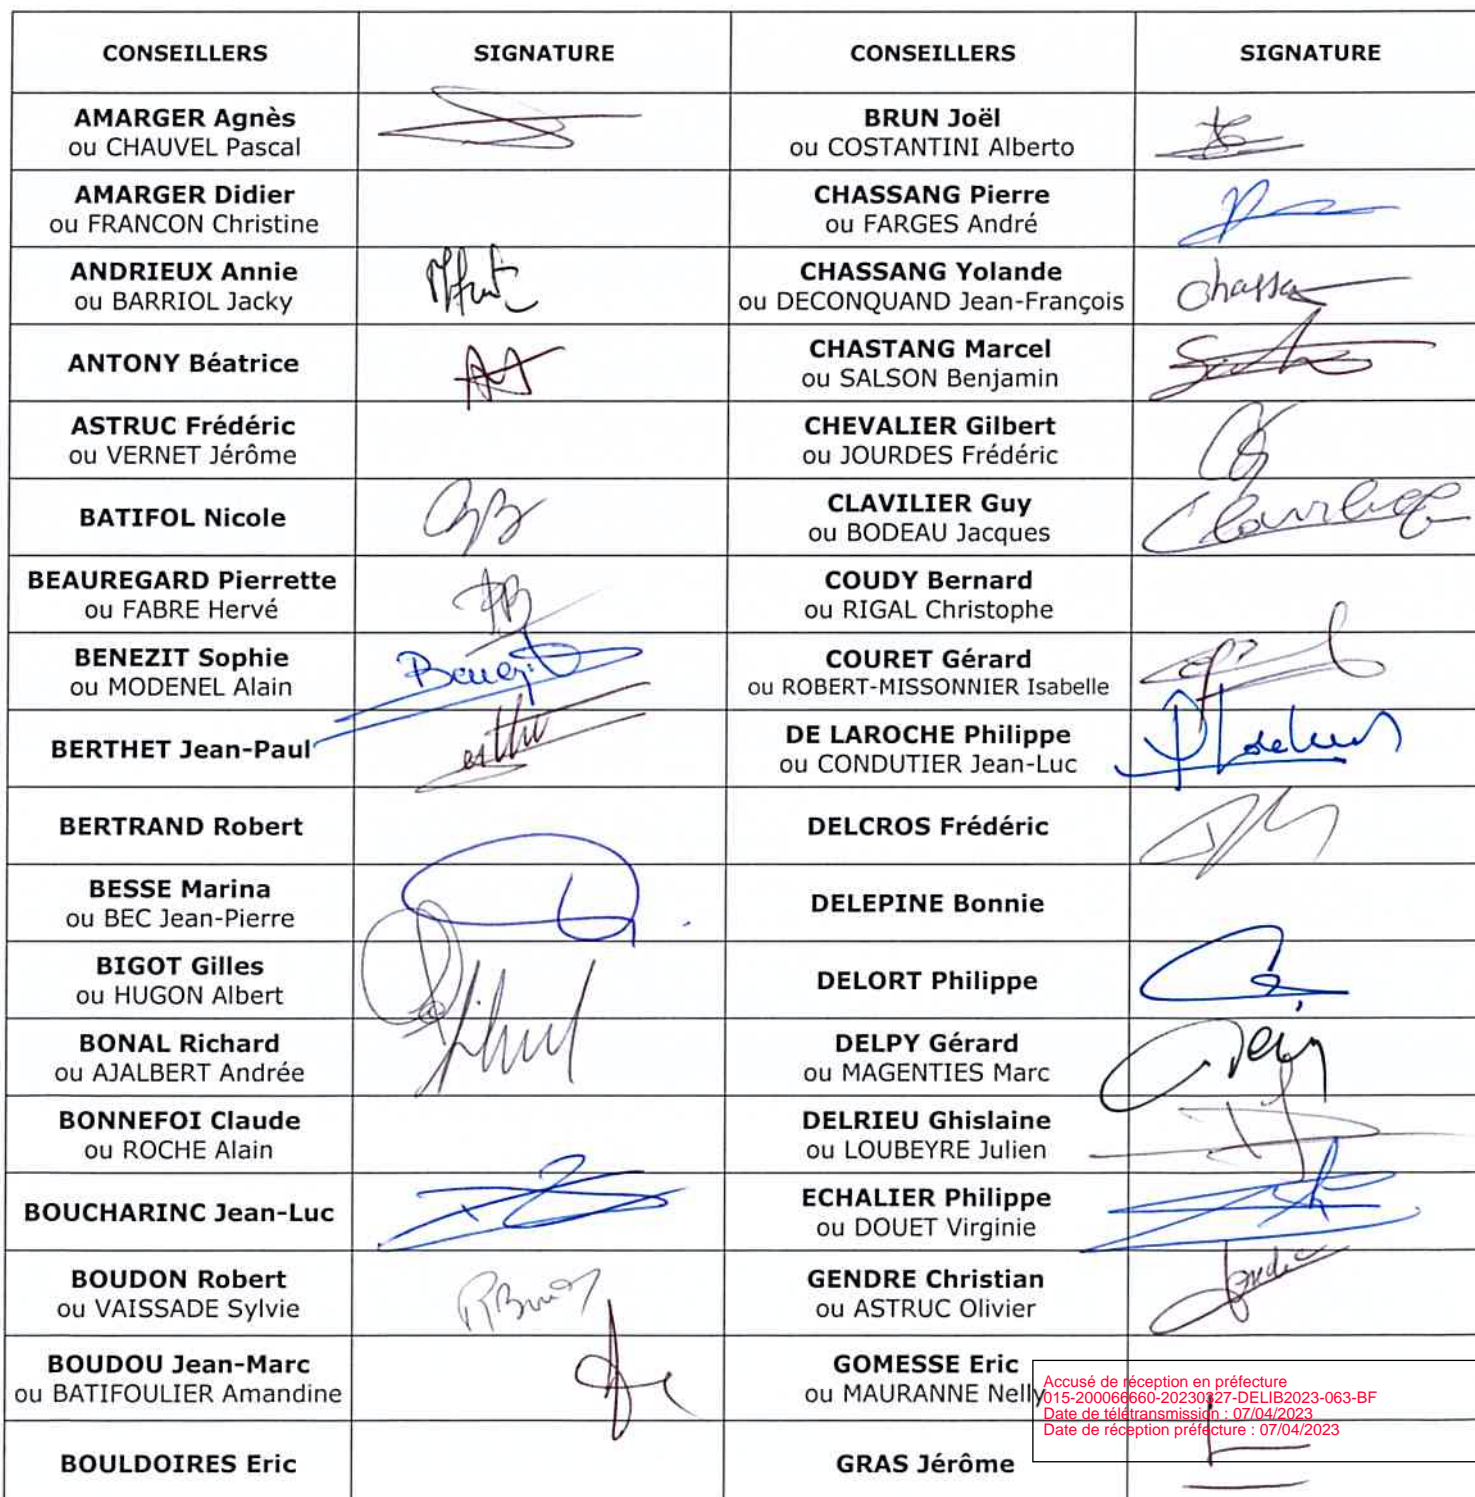 CONSEILLERS SIGNATURE CONSEILLERS SIGNATURE
AMARGER Agnès
ou CHAUVEL Pascal
BRUN Joël
ou COSTANTINI Alberto
AMARGER Didier
ou FRANCON Christine
CHASSANG Pierre
ou FARGES André
ANDRIEUX Annie
ou BARRIOL Jacky
CHASSANG Yolande
ou DECONQUAND Jean-François
ANTONY Béatrice
CHASTANG Marcel
ou SALSON Benjamin
ASTRUC Frédéric
ou VERNET Jérôme
CHEVALIER Gilbert
ou JOURDES Frédéric
BATIFOL Nicole
CLAVILIER Guy
ou BODEAU Jacques
BEAUREGARD Pierrette
ou FABRE Hervé
COUDY Bernard
ou RIGAL Christophe
BENEZIT Sophie
ou MODENEL Alain
COURET Gérard
ou ROBERT-MISSONNIER Isabelle
BERTHET Jean-Paul
DE LAROCHE Philippe
ou CONDUTIER Jean-Luc
BERTRAND Robert
DELCROS Frédéric
BESSE Marina
ou BEC Jean-Pierre
DELEPINE Bonnie
BIGOT Gilles
ou HUGON Albert
DELORT Philippe
BONAL Richard
ou AJALBERT Andrée
DELPY Gérard
ou MAGENTIES Marc
BONNEFOI Claude
ou ROCHE Alain
DELRIEU Ghislaine
ou LOUBEYRE Julien
BOUCHARINC Jean-Luc
ECHALIER Philippe
ou DOUET Virginie
BOUDON Robert
ou VAISSADE Sylvie
GENDRE Christian
ou ASTRUC Olivier
BOUDOU Jean-Marc
ou BATIFOULIER Amandine
GOMESSE Eric
ou MAURANNE Nelly
Accusé de réception en préfecture
015-200066660-20230327-DELIB2023-063-BF
Date de télétransmission : 07/04/2023
Date de réception préfecture : 07/04/2023
BOULDOIRES Eric
GRAS Jérôme